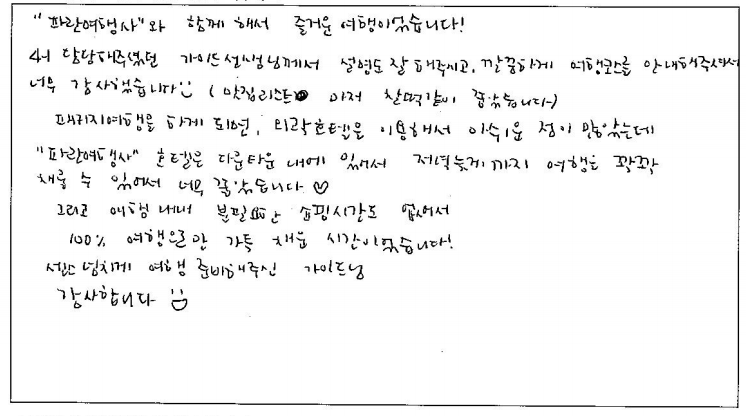 "파란여행사"와 함께 해서 즐거운 여행이었습니다!
저희 담당해주셨던 가이드선생님께서 설명도 잘해주시고, 깔끔하게 여행코스를 안내해주셔서
너무 감사했습니다 (맛집리스트 마저 찰떡같이 좋았습니다~)
패키지여행을 하게 되면, 외곽호텔을 이용해서 아쉬운 점이 많았는데
"파란여행사" 호텔은 다운타운 내에 있어서 저녁늦게까지 여행을 꽉꽉
채울 수 있어서 너무 좋았습니다 ♡
그리고 여행 내내 불필요한 쇼핑시간도 없어서
100% 여행으로만 가득 채운 시간이었습니다!
센스넘치게 여행 준비해주신 가이드님
감사합니다